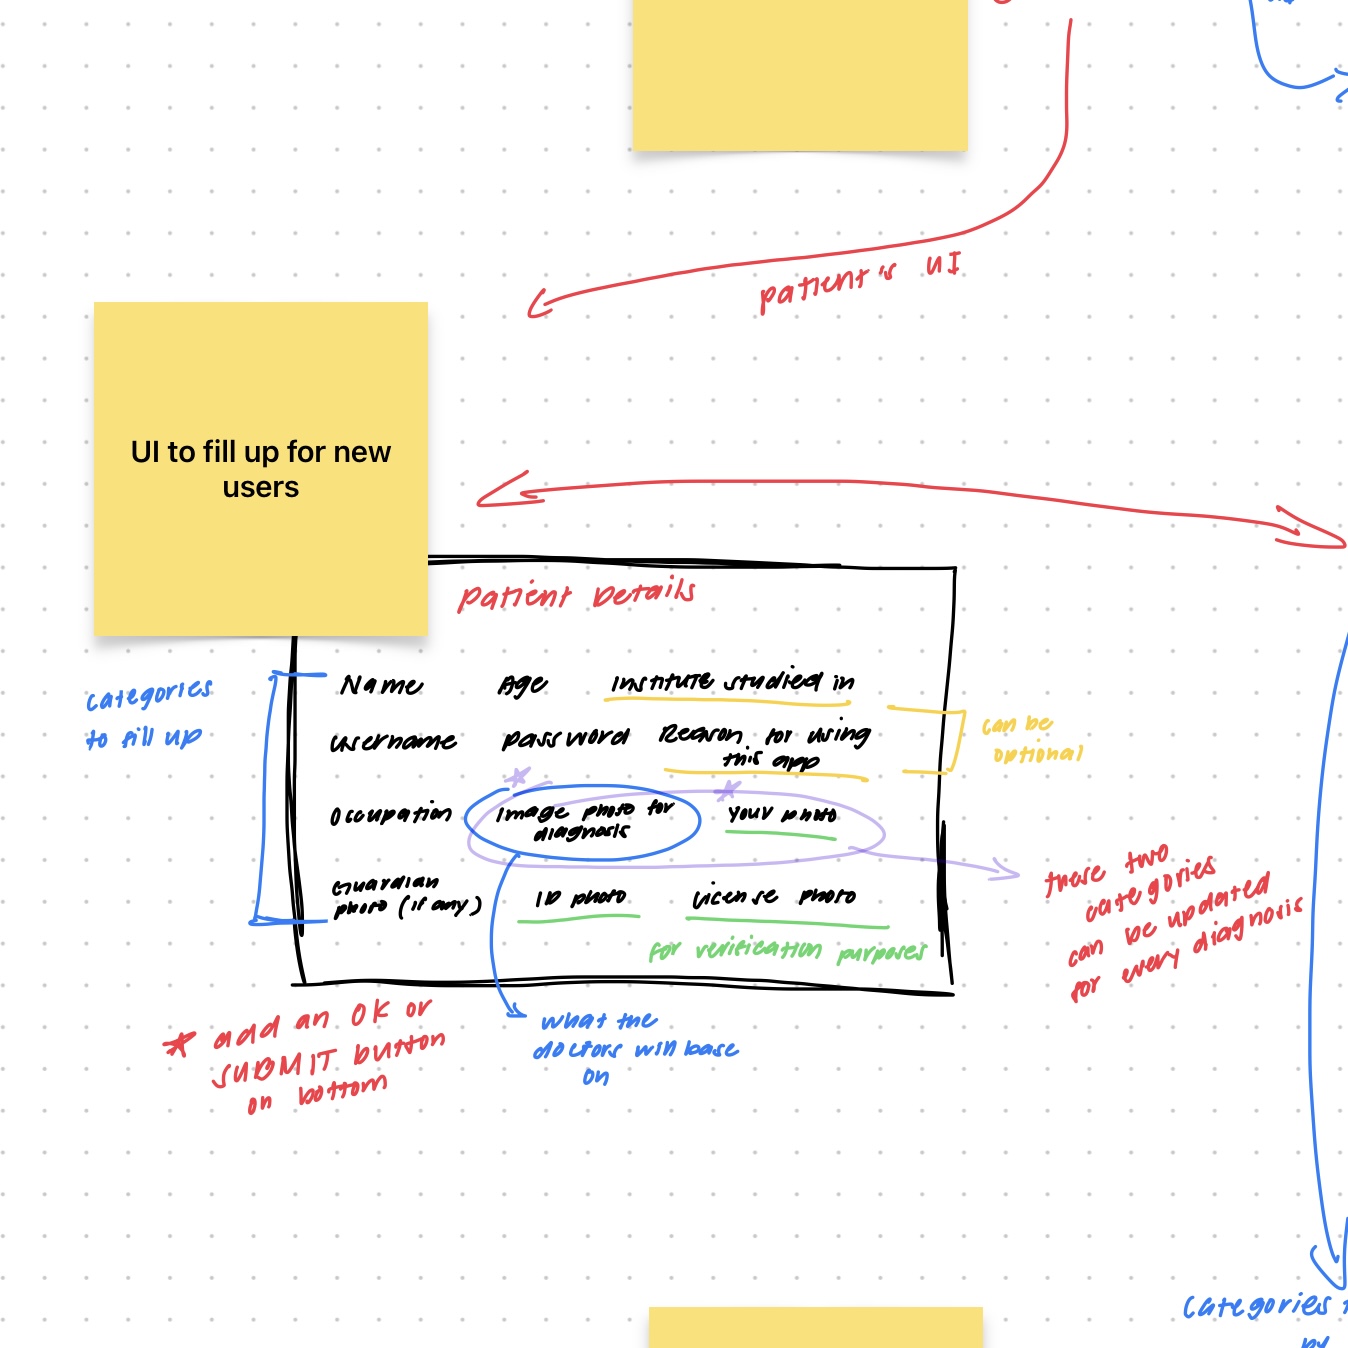 patient's UI
UI to fill up for new
users
Patient Details
categories
to fill up
Name Age Institute studied in
Username Password Reason for using
this app
can be
optional
Occupation Image photo for
diagnosis
Your photo
Guardian
photo (if any)
ID photo License photo
for verification purposes
these two
categories
can be updated
for every diagnosis
* add an OK or
SUBMIT button
on bottom
what the
doctors will base
on
categories
by